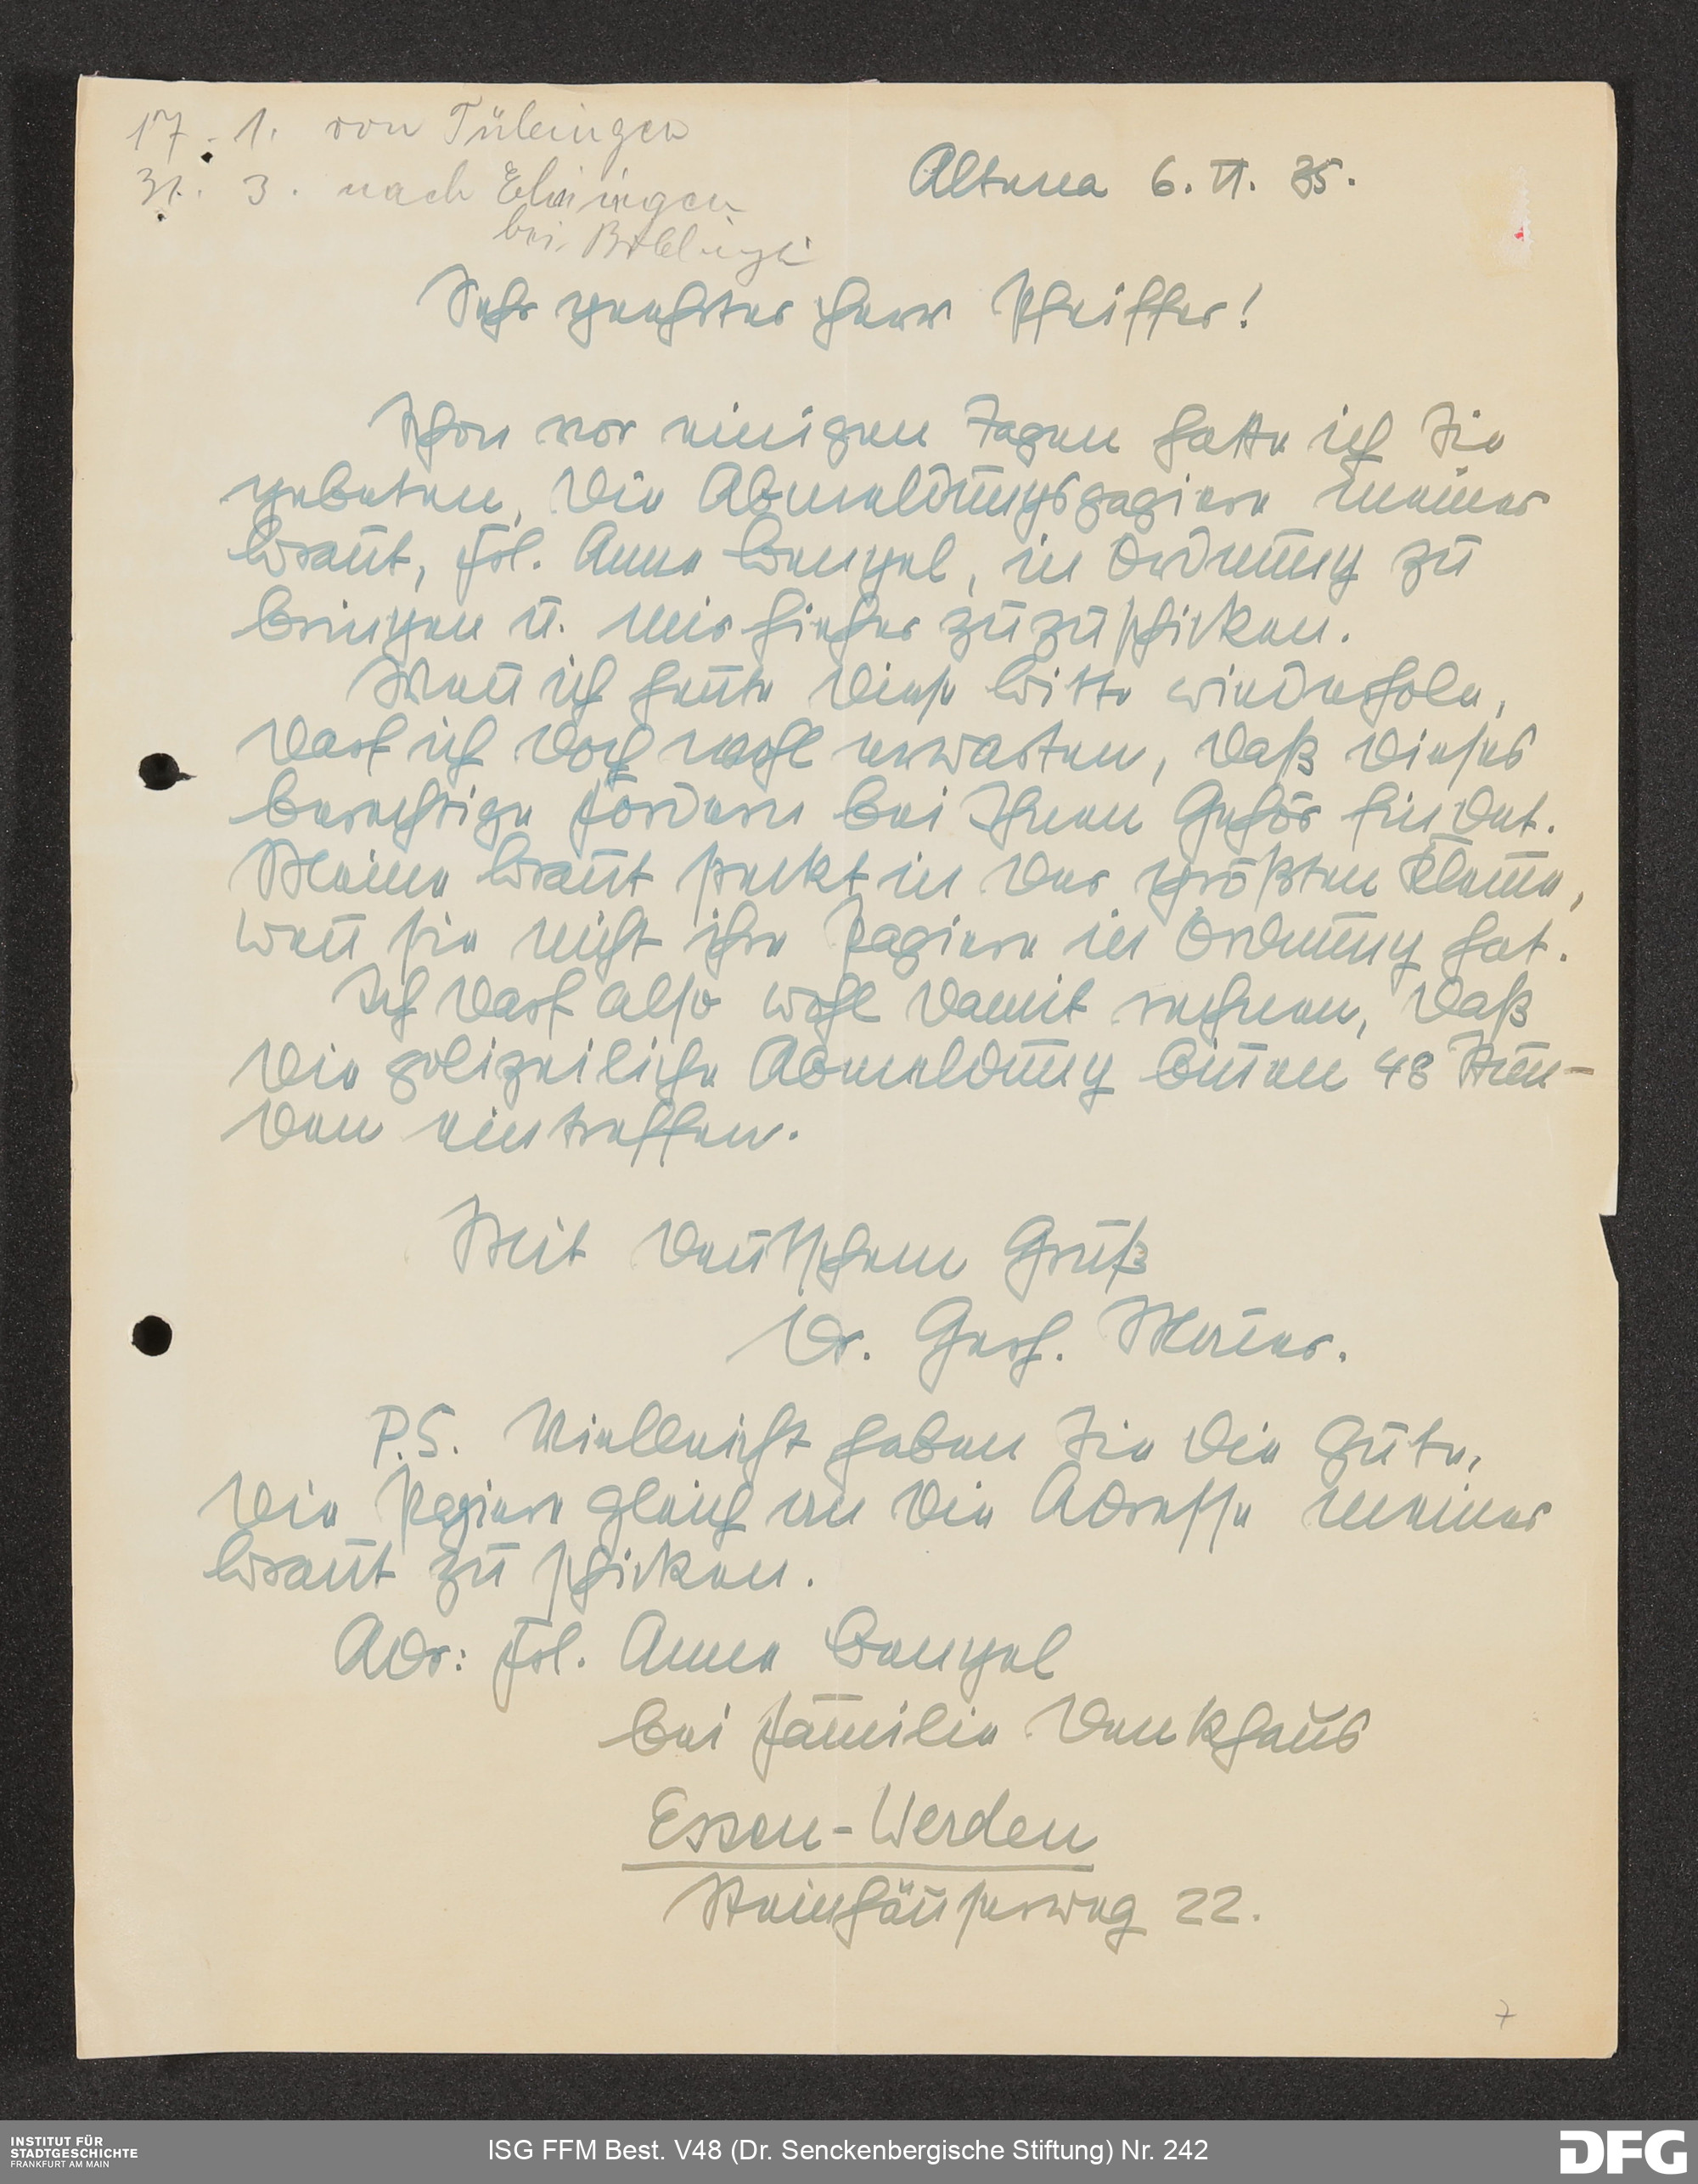 17. 1. von Tübingen
31. 3. nach Ehningen
bei Böblingen
Altena 6. VI. 35.
Sehr geehrter Herr Pfeiffer!
Schon vor einigen Tagen hatte ich Sie
gebeten, die Abmeldungspapiere meiner
Braut, Frl. Anne Bengel, in Ordnung zu
bringen u. mir hieher zuzuschicken.
Wen̄ ich heute diese Bitte wiederhole,
darf ich doch wohl erwarten, daß dieses
berechtigte fordern bei Ihnen Gehör findet.
Meine Braut steckt in der größten Klem̄e,
wen̄ sie nicht ihre Papiere in Ordnung hat.
Ich darf also wohl damit rechnen, daß
die polizeiliche Abmeldung bin̄en 48 Stun-
den eintreffen.
Mit deutschem Gruß
Dr. Gerh.
P.S. Vielleicht haben Sie die Güte,
die Papiere gleich an die Adresse meiner
Braut zu schicken.
Adr: Frl. Anne Bengel
bei Familie Denkhaus
Essen-Werden
Steinhäuserweg 22.
7
INSTITUT FÜR
STADTGESCHICHTE
FRANKFURT AM MAIN
ISG FFM Best. V48 (Dr. Senckenbergische Stiftung) Nr. 242
DFG